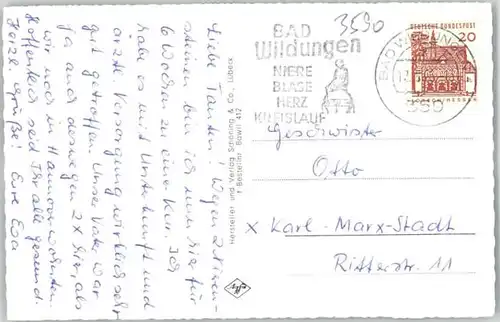 Liebe Tanten! Wegen
steinen bin ich nun hier für
6 Wochen zu einer Kur. Ich
habe es mit Unterkunft und
ärztl. Versorgung wirklich sehr
gut getroffen. Unser Vater war
ja auch deswegen 2 x hier, als
wir noch in Hannover wohnten.
Hoffentlich seid Ihr alle gesund.
Herzl. Grüße! Eure Eva
Hersteller und Verlag Schöning & Co., Lübeck
† Bestellnr. Bawi 412
3590
BAD
Wildungen
NIERE
BLASE
HERZ
KREISLAUF
DEUTSCHE BUNDESPOST
20
LORSCH/HESSEN
BAD WILDUNGEN
359
Geschwister
Otto
x Karl-Marx-Stadt
Ritterstr. 11